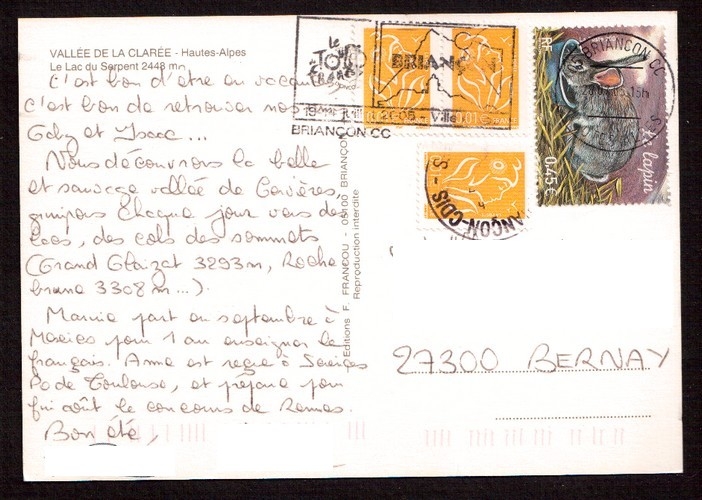 VALLÉE DE LA CLARÉE - Hautes-Alpes
Le Lac du Serpent 2448 m
C'est bon d'être en vacances
c'est bon de retrouver nos
Gaby et Isaac ...
Nous découvrons la belle
et sauvage vallée de Cervières,
grimpons chaque jour vers des
lacs, des cols des sommets
(Grand Glaizat 3293m, Roche
brune 3308m ...).
Marine part en septembre à
pour 1 an enseigner le
français. Anne est reçue à Sciences
Po de Toulouse, et prépare pour
fin août le concours de Rennes.
Bon été,
Editions F. FRANCOU - 05100 BRIANÇON
Reproduction interdite
le TOUR de FRANCE
BRIANÇON
2005
Ville
BRIANÇON CC
0,01 € FRANCE
BRIANÇON CC
15h
RF
Le lapin
0,45 €
BRIANÇON-CDIS
27300 BERNAY